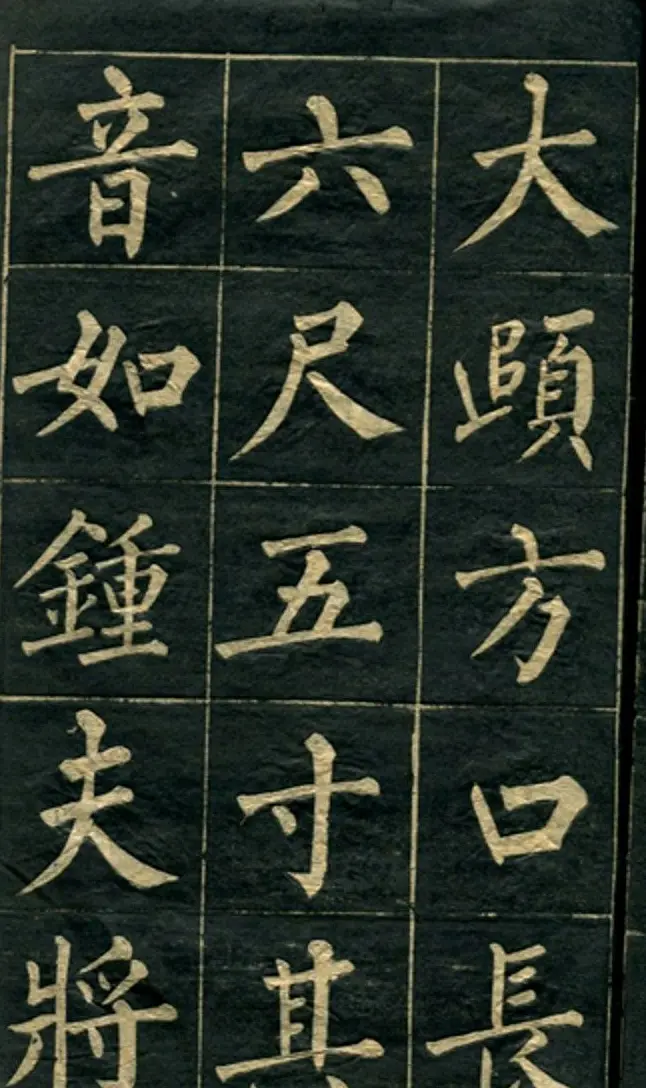 大頤方口長
六尺五寸其
音如鍾夫將